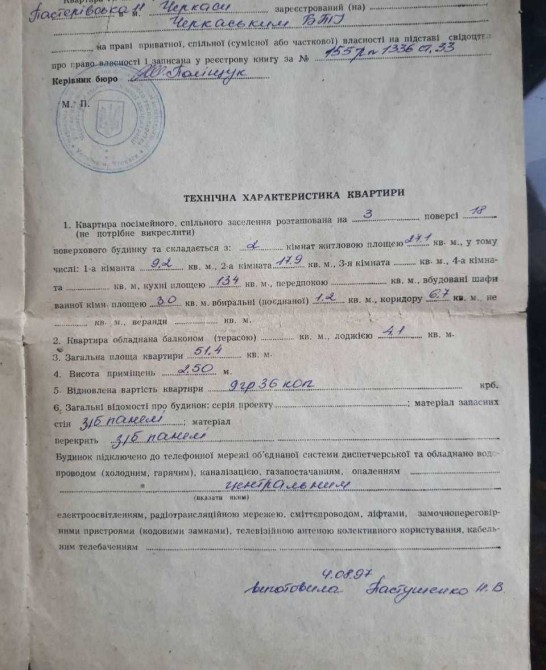 Пастерівська 11 м. Черкаси зареєстрований (на)
Черкаським БТІ
на праві приватної, спільної (сумісної або часткової) власності на підставі свідоцтва
про право власності і записана у реєстрову книгу за № 1336 ст. 33
Керівник бюро Поліщук
М. П.
ТЕХНІЧНА ХАРАКТЕРИСТИКА КВАРТИРИ
1. Квартира посімейного, спільного заселення розташована на 3 поверсі 18
(не потрібне викреслити)
поверхового будинку та складається з: 2 кімнат житловою площею 27.1 кв. м., у тому
числі: 1-а кімната 9,2 кв. м., 2-а кімната 17.9 кв. м., 3-я кімната кв. м., 4-а кімна-
та кв. м, кухні площею 13.4 кв. м., передпокою кв. м., вбудовані шафи
ванної кімн. площею 3.0 кв. м. вбиральні (поєднаної) 1.2 кв. м., коридору 6,7 кв. м. не
кв. м., веранди кв. м.
2. Квартира обладнана балконом (терасою) кв. м., лоджією 4,1 кв. м.
3. Загальна площа квартири 51.4 кв. м.
4. Висота приміщень 2,50 м.
5. Відновлена вартість квартири 9 гр 36 коп крб.
6. Загальні відомості про будинок: серія проекту ; матеріал запасних
стін з/б панелі ; матеріал
перекрить з/б панелі
Будинок підключено до телефонної мережі об'єднаної системи диспетчерської та обладнано водо-
проводом (холодним, гарячим), каналізацією, газопостачанням, опаленням
центральним
(вказати яким)
електроосвітленням, радіотрансляційною мережею, сміттєпроводом, ліфтами, замочнопереговір-
ними пристроями (кодовими замками), телевізійною антеною колективного користування, кабель-
ним телебаченням
4.08.97
виготовила Пастушенко Н. В.